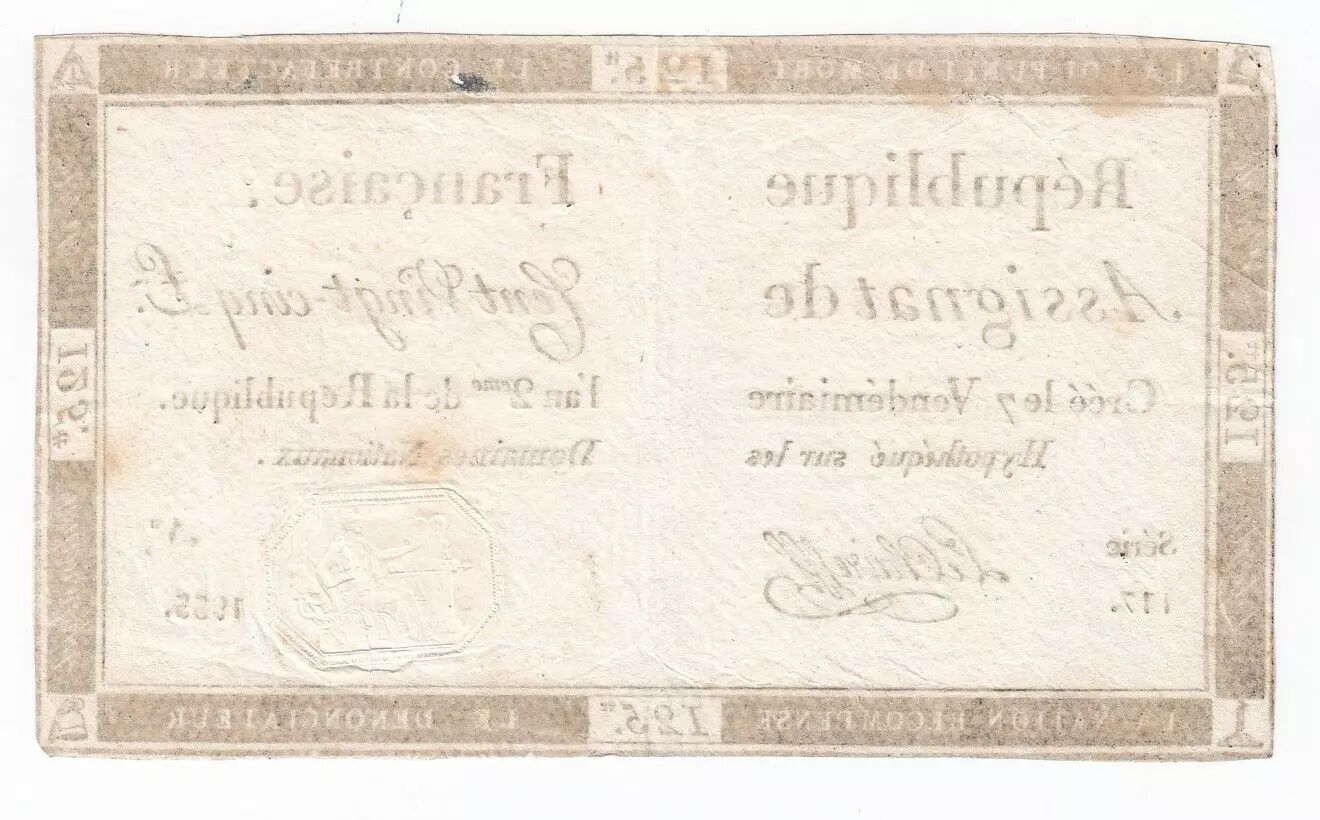 LA LOI PUNIT DE MORT 125.# LE CONTREFACTEUR
République Française.
Assignat de Cent Vingt-cinq ₶.
Créé le 7 Vendémiaire l'an 2ème de la République.
Hypothéqué sur les Domaines Nationaux.
Série No.
117. 1955.
125.#
125.#
LA NATION RECOMPENSE 125.# LE DENONCIATEUR